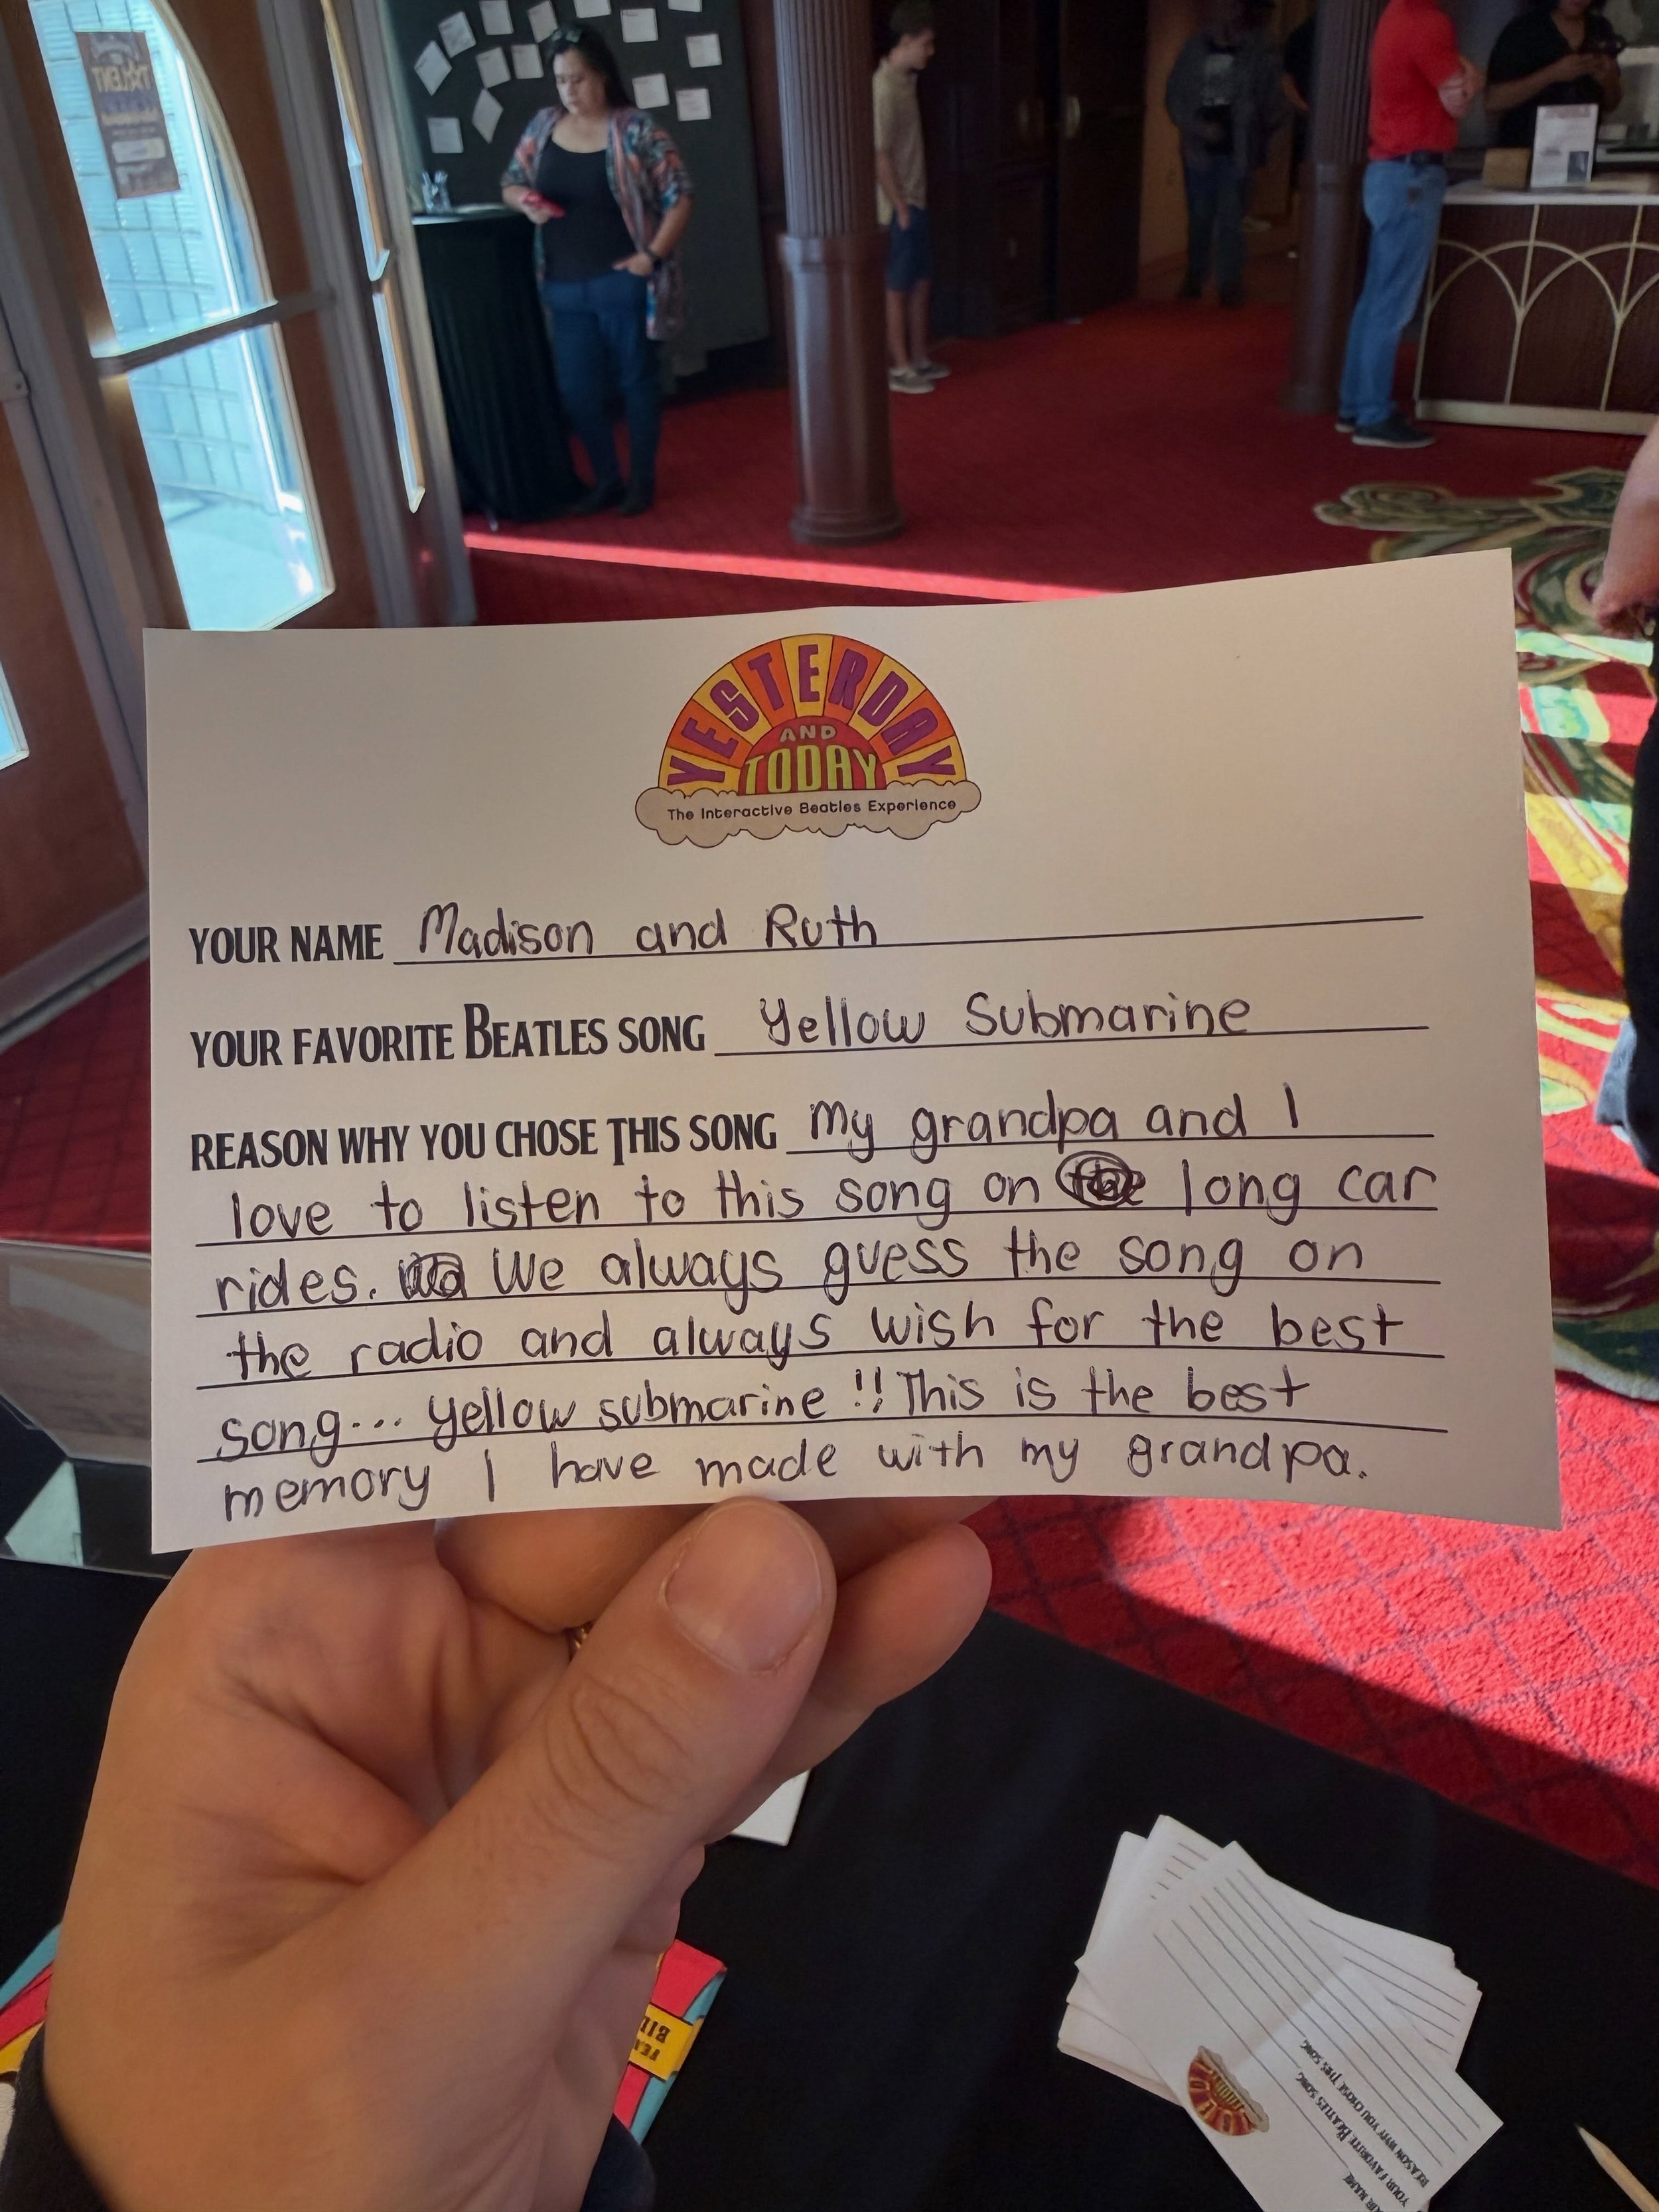 TALENT
YESTERDAY
AND
TODAY
The Interactive Beatles Experience
YOUR NAME Madison and Ruth
YOUR FAVORITE BEATLES SONG Yellow Submarine
REASON WHY YOU CHOSE THIS SONG My grandpa and I
love to listen to this song on the long car
rides. We always guess the song on
the radio and always wish for the best
song... yellow submarine !! This is the best
memory I have made with my grandpa.
YOUR FAVORITE BEATLES SONG
REASON WHY YOU CHOSE THIS SONG